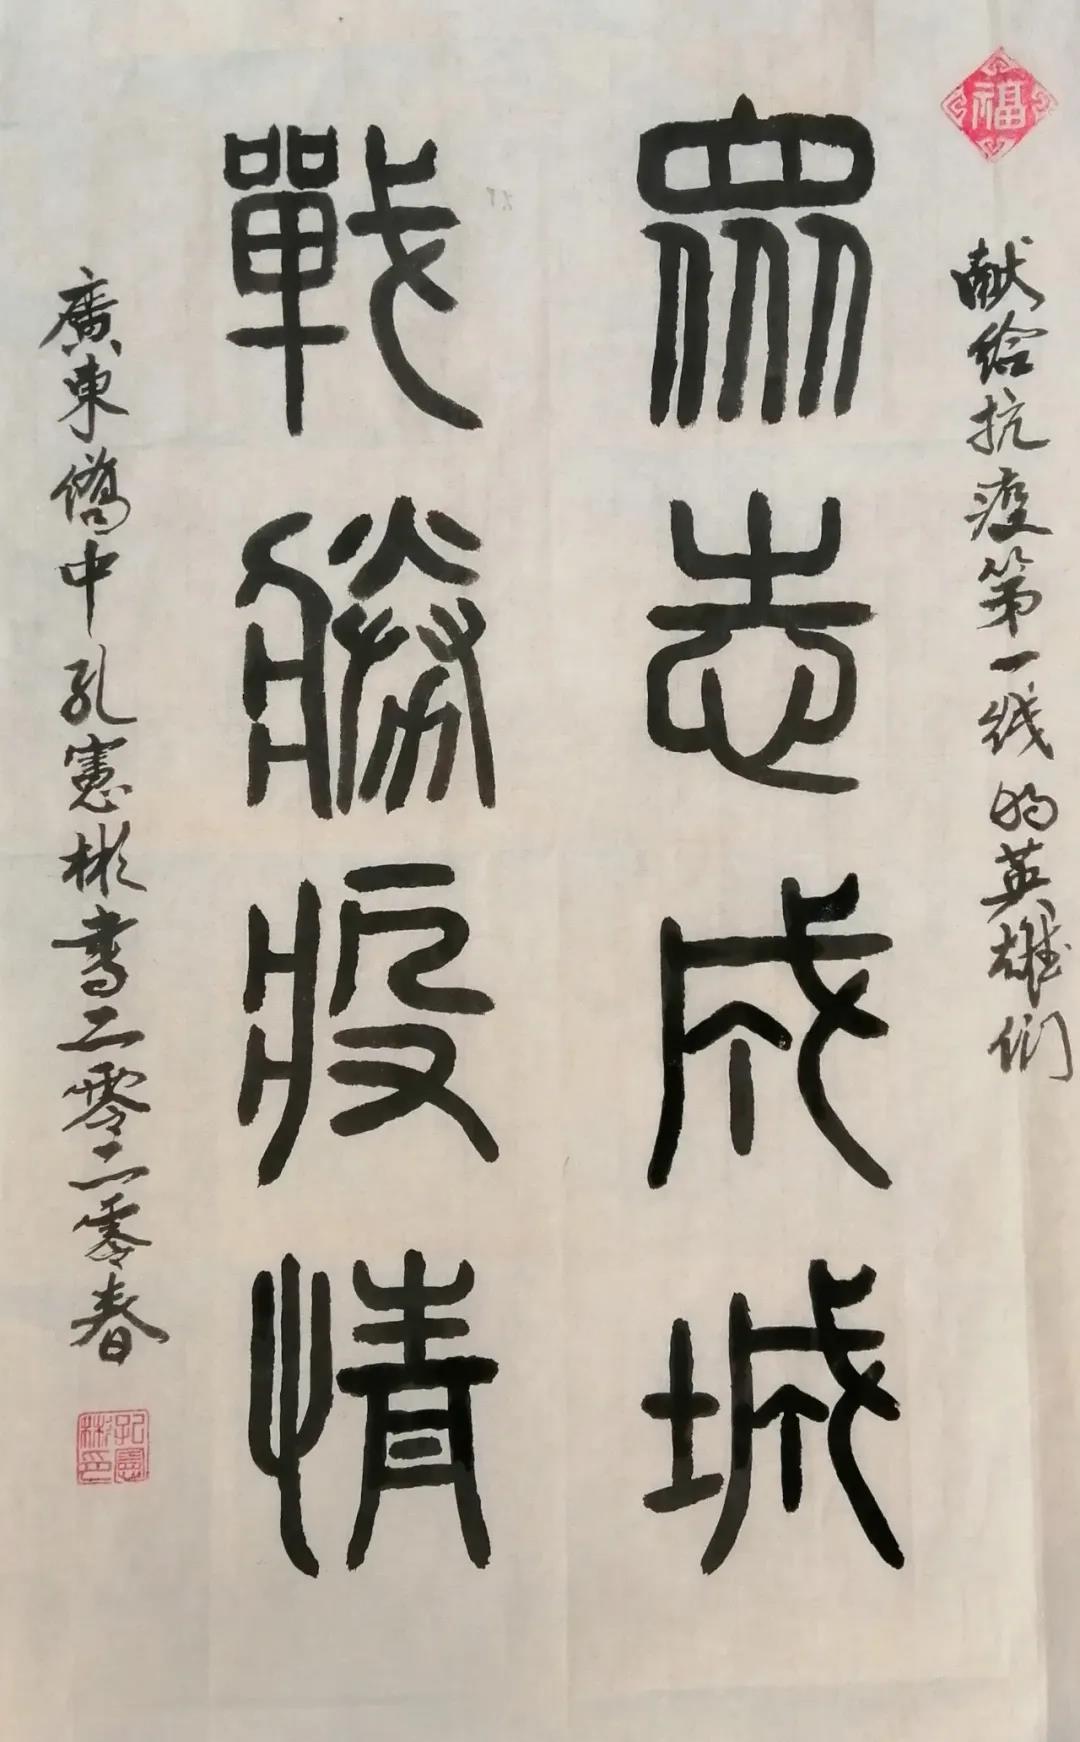 福
献给抗疫第一线的英雄们
眾志成城
戰勝疫情
廣東僑中孔憲彬書二零二零春
孔憲彬印